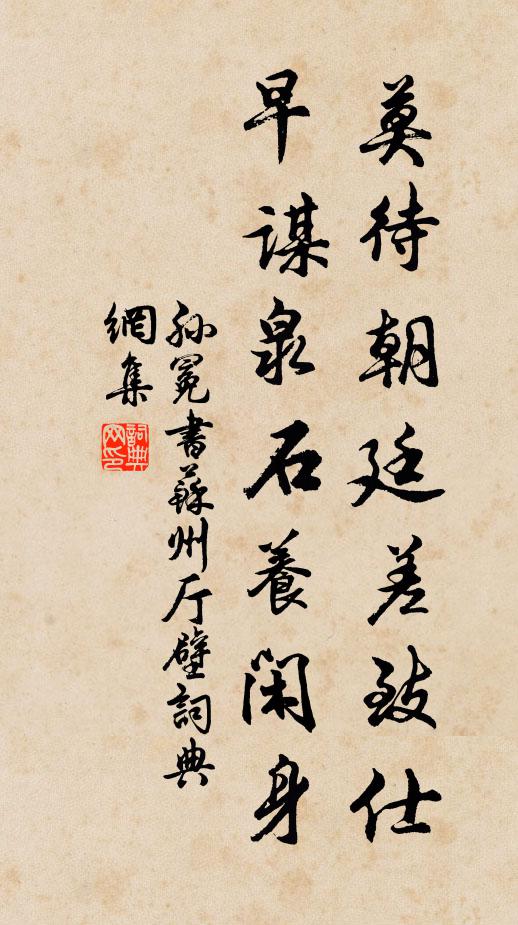 莫待朝廷差致仕
早谋泉石養闲身
孙冕書蘇州厅壁詞典
網集
詞典
网印